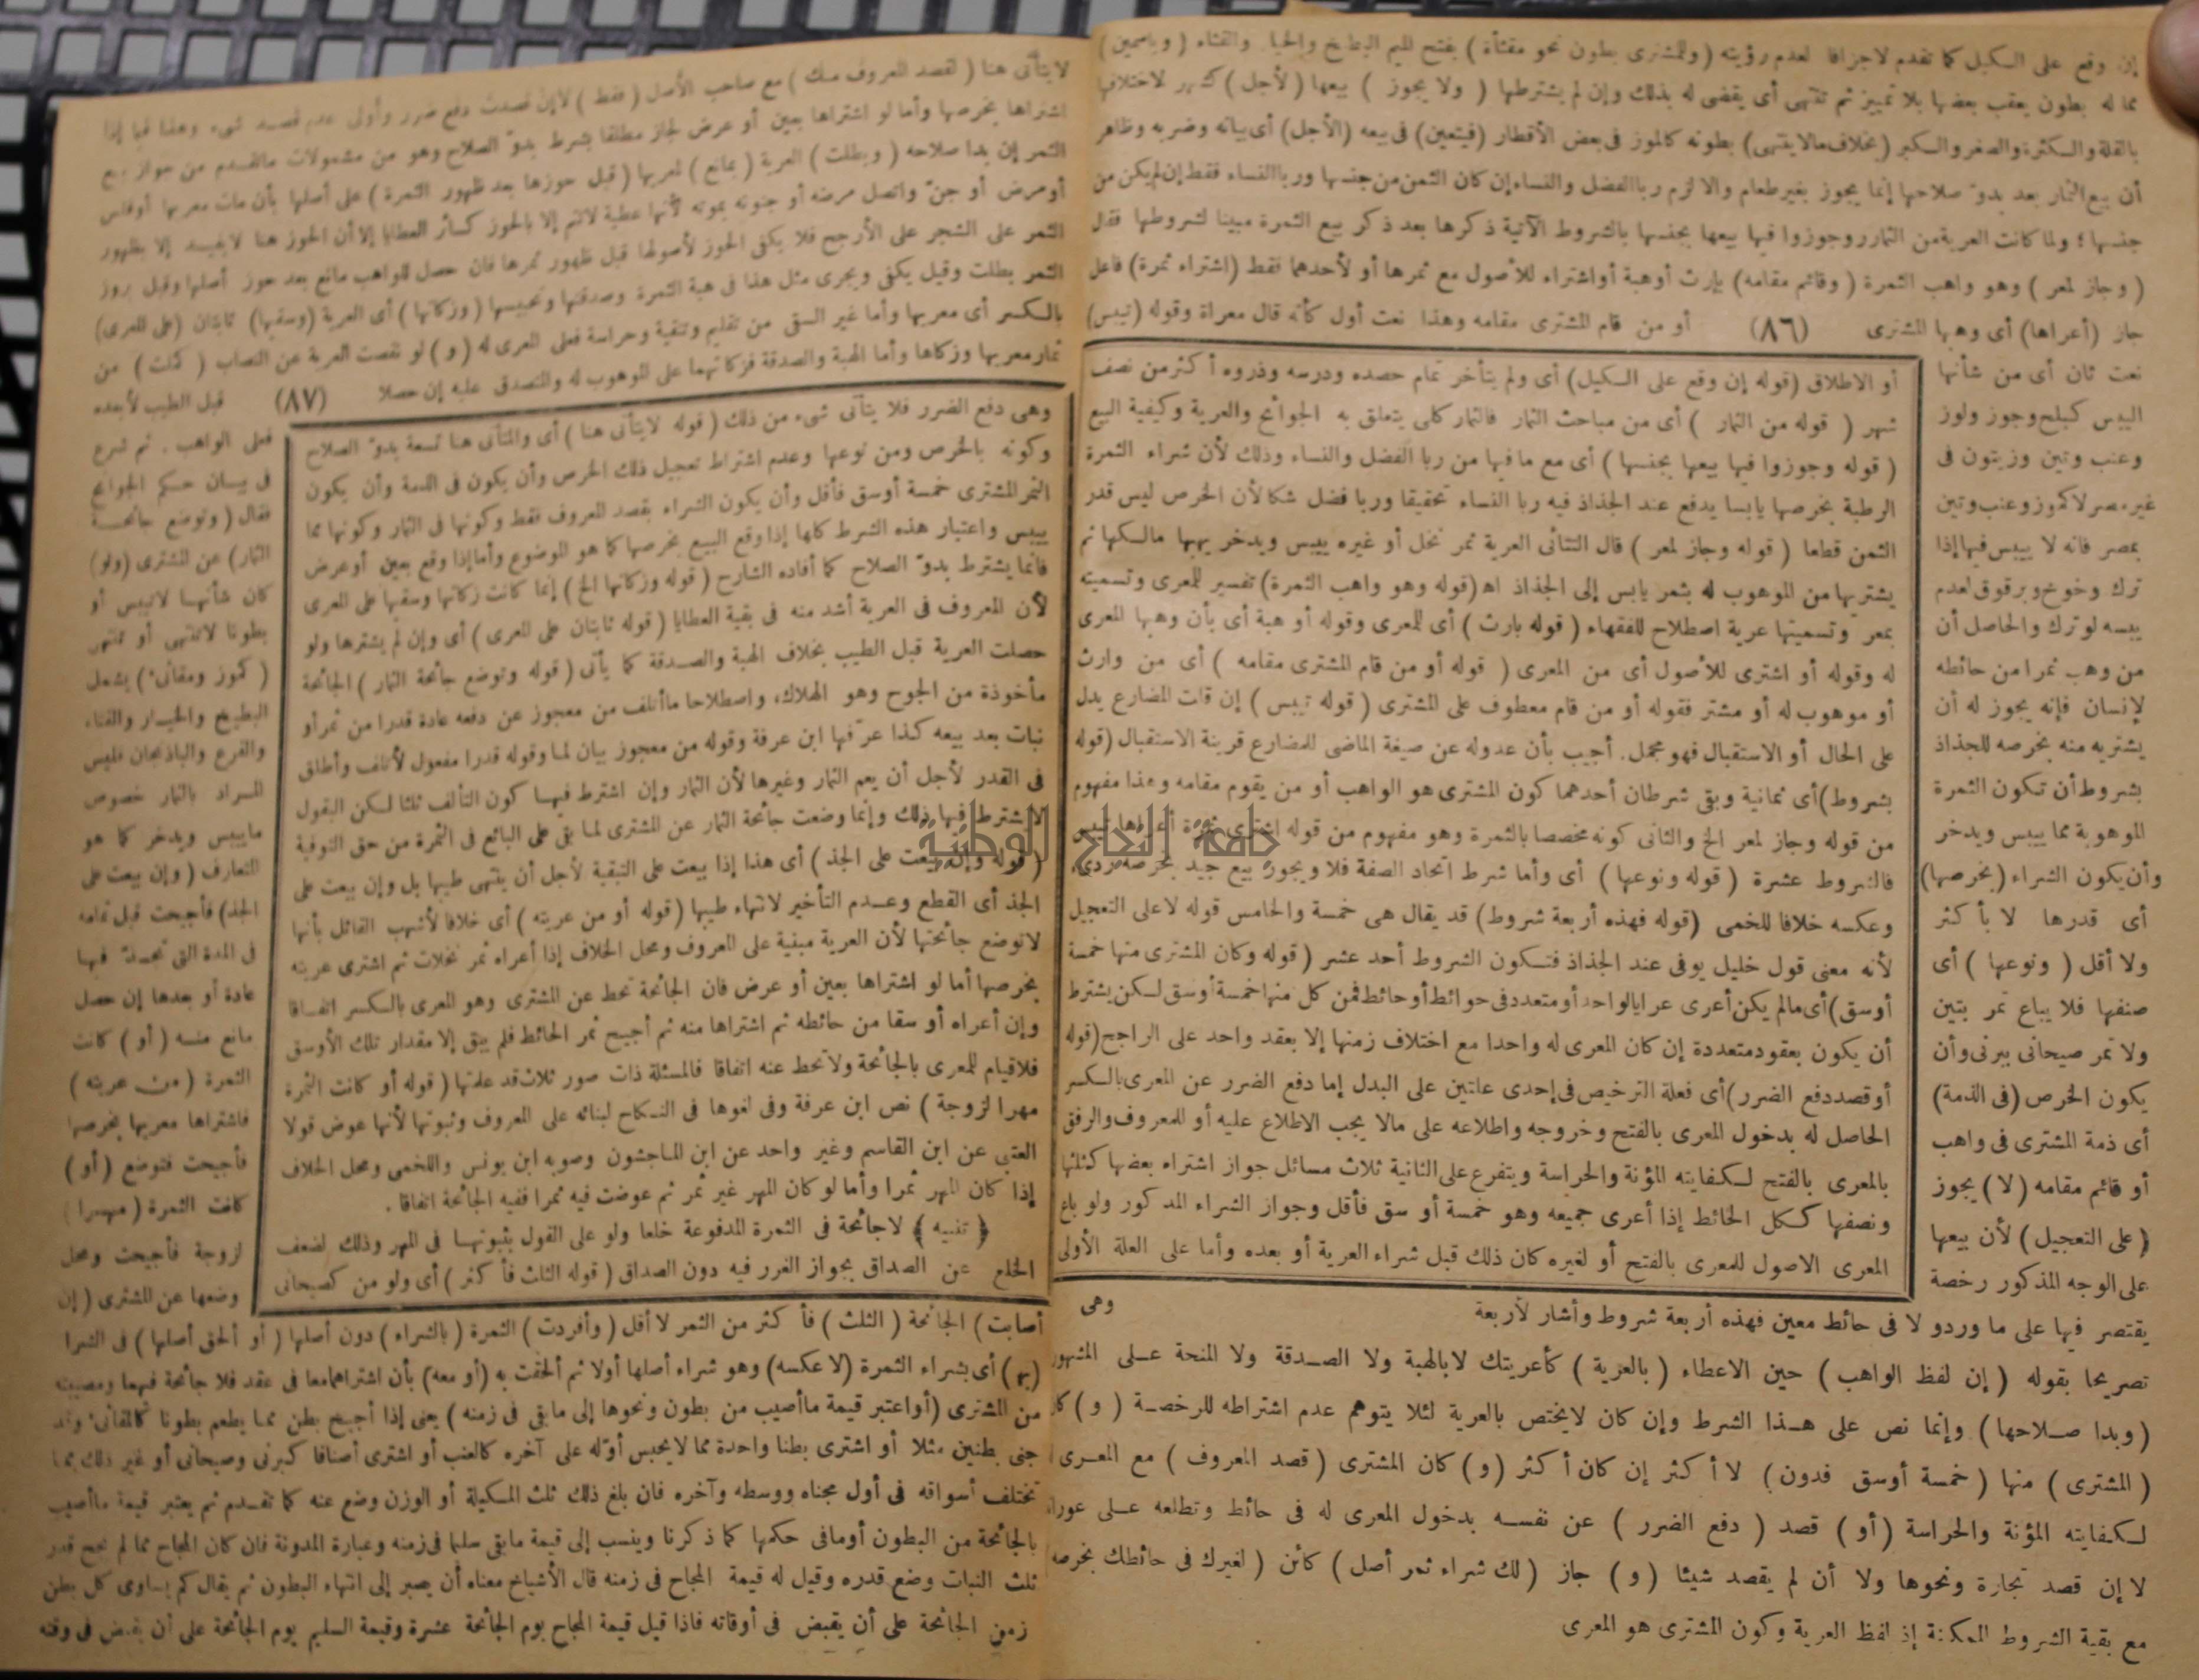 إن وقع على الكيل كما تقدم لاجزافا لعدم رؤيته (وللمشترى بطون نحو مقثأة) بفتح الميم البطيخ والخيار والقثاء (وياسمين)
مما له بطون يعقب بعضها بلا تمييز ثم تنتهى أى يقضى له بذلك وإن لم يشترطها (ولا يجوز) بيعها (لأجل) كشهر لاختلافها
بالقلة والكثرة والصغر والكبر (بخلاف مالا ينتهى) بطونه كالموز فى بعض الأقطار (فيتعين) فى بيعه (الأجل) أى بيانه وضربه وظاهر
أن بيع الثمار بعد بدو صلاحها إنما يجوز بغير طعام والا لزم ربا الفضل والنساء إن كان الثمن من جنسها وربا النساء فقط إن لم يكن من
جنسها ؛ ولما كانت العرية من الثمار وجوزوا فيها بيعها بجنسها بالشروط الآتية ذكرها بعد ذكر بيع الثمرة مبينا لشروطها فقال
(وجاز لمعر) وهو واهب الثمرة (وقائم مقامه) بإرث أوهبة أو اشتراء للأصول مع ثمرها أو لأحدهما فقط (اشتراء ثمرة) فاعل
جاز (أعراها) أى وهبها المشترى (٨٦) أو من قام المشترى مقامه وهذا نعت أول كأنه قال معراة وقوله (تيبس)
نعت ثان أى من شأنها
اليبس كبلح وجوز ولوز
وعنب وتين وزيتون فى
غير مصر لا كموز وعنب وتين
بمصر فانه لا ييبس فيها إذا
ترك وخوخ وبرقوق لعدم
يبسه لو ترك والحاصل أن
من وهب ثمرا من حائطه
لإنسان فإنه يجوز له أن
يشتريه منه بخرصه للجذاذ
بشروط أن تكون الثمرة
الموهوبة مما ييبس ويدخر
وأن يكون الشراء (بخرصها)
أى قدرها لا بأكثر
ولا أقل (ونوعها) أى
صنفها فلا يباع تمر بتين
ولا تمر صيحانى ببرنى وأن
يكون الخرص (فى الذمة)
أى ذمة المشترى فى واهب
أو قائم مقامه (لا) يجوز
(على التعجيل) لأن بيعها
على الوجه المذكور رخصة
يقتصر فيها على ما وردو لا فى حائط معين فهذه أربعة شروط وأشار لأربعة
تصريحا بقوله (إن لفظ الواهب) حين الاعطاء (بالعرية) كأعريتك لا بالهبة ولا الصدقة ولا المنحة على المشهور
(وبدا صلاحها) وإنما نص على هذا الشرط وإن كان لايختص بالعرية لئلا يتوهم عدم اشتراطه للرخصة (و) كان
(المشترى) منها (خمسة أوسق فدون) لا أكثر إن كان أكثر (و) كان المشترى (قصد المعروف) مع المعرى
لكفايته المؤنة والحراسة (أو) قصد (دفع الضرر) عن نفسه بدخول المعرى له فى حائط وتطلعه على
لا إن قصد تجارة ونحوها ولا أن لم يقصد شيئا (و) جاز (لك شراء ثمر أصل) كائن (لغيرك فى حائطك بخرصه)
مع بقية الشروط الممكنة إذ لفظ العرية وكون المشترى هو المعرى
أو الاطلاق (قوله إن وقع على الكيل) أى ولم يتأخر تمام حصده ودرسه وذروه أكثر من نصف
شهر (قوله من الثمار) أى من مباحث الثمار فالثمار كلى يتعلق به الجوائح والعرية وكيفية البيع
(قوله وجوزوا فيها بيعها بجنسها) أى مع ما فيها من ربا الفضل والنساء وذلك لأن شراء الثمرة
الرطبة بخرصها يابسا يدفع عند الجذاذ فيه ربا النساء تحقيقا وربا فضل شكا لأن الخرص ليس قدر
الثمن قطعا (قوله وجاز لمعر) قال التتائى العرية ثمر نخل أو غيره ييبس ويدخر يهبها مالكها ثم
يشتريها من الموهوب له بثمر يابس إلى الجذاذ اه (قوله وهو واهب الثمرة) تفسير للمعرى وتسميته
بمعر وتسميتها عرية اصطلاح للفقهاء (قوله بارث) أى للمعرى وقوله أو هبة أى بأن وهبها المعرى
له وقوله أو اشترى للأصول أى من المعرى (قوله أو من قام المشترى مقامه) أى من وارث
أو موهوب له أو مشتر فقوله أو من قام معطوف على المشترى (قوله تيبس) إن قلت المضارع يدل
على الحال أو الاستقبال فهو مجمل. أجيب بأن عدوله عن صيغة الماضى للمضارع قرينة الاستقبال (قوله
بشروط) أى ثمانية وبقى شرطان أحدهما كون المشترى هو الواهب أو من يقوم مقامه وهذا مفهوم
من قوله وجاز لمعر الخ والثانى كونه مخصصا بالثمرة وهو مفهوم من قوله اشتراء ثمرة أعراها تيبس
فالشروط عشرة (قوله ونوعها) أى وأما شرط اتحاد الصفة فلا ويجوز بيع جيد بخرصه ردىء
وعكسه خلافا للخمى (قوله فهذه أربعة شروط) قد يقال هى خمسة والخامس قوله لا على التعجيل
لأنه معنى قول خليل يوفى عند الجذاذ فتكون الشروط أحد عشر (قوله وكان المشترى منها خمسة
أوسق) أى مالم يكن أعرى عرايا لواحد أو متعدد فى حوائط أو حائط فمن كل منها خمسة أوسق لكن يشترط
أن يكون بعقود متعددة إن كان المعرى له واحدا مع اختلاف زمنها إلا بعقد واحد على الراجح (قوله
أو قصد دفع الضرر) أى فعلة الترخيص فى إحدى علتين على البدل إما دفع الضرر عن المعرى بالكسر
الحاصل له بدخول المعرى بالفتح وخروجه واطلاعه على مالا يجب الاطلاع عليه أو للمعروف والرفق
بالمعرى بالفتح لكفايته المؤنة والحراسة ويتفرع على الثانية ثلاث مسائل جواز اشتراء بعضها كثلثها
ونصفها ككل الحائط إذا أعرى جميعه وهو خمسة أوسق فأقل وجواز الشراء المذكور ولو باع
المعرى الاصول للمعرى بالفتح أو لغيره كان ذلك قبل شراء العرية أو بعده وأما على العلة الأولى
وهى
لا يتأتى هنا (لقصد المعروف منك) مع صاحب الأصل (فقط) لا إن قصدت دفع ضرر وأولى عدم قصد شىء وهذا فيما إذا
اشتراها بخرصها وأما لو اشتراها بعين أو عرض لجاز مطلقا بشرط بدو الصلاح وهو من مشمولات ماتقدم من جواز بيع
الثمر إن بدا صلاحه (وبطلت) العرية (بمانع) لمعريها (قبل حوزها بعد ظهور الثمرة) على أصلها بأن مات معريها أو فلس
أو مرض أو جن واتصل مرضه أو جنونه بموته لأنها عطية لاتتم إلا بالحوز كسائر العطايا إلا أن الحوز هنا لايفيد إلا بظهور
الثمر على الشجر على الأرجح فلا يكفى الحوز لأصولها قبل ظهور ثمرها فان حصل للواهب مانع بعد حوز أصلها وقبل بروز
الثمر بطلت وقيل يكفى ويجرى مثل هذا فى هبة الثمرة وصدقتها وتحبيسها (وزكاتها) أى العرية (وسقيها) ثابتان (على المعرى)
بالكسر أى معريها وأما غير السقى من تقليم وتنقية وحراسة فعلى المعرى له (و) لو نقصت العرية عن النصاب (كملت) من
ثمار معريها وزكاها وأما الهبة والصدقة فزكاتهما على الموهوب له والمتصدق عليه إن حصلا (٨٧) قبل الطيب لا بعده
فعلى الواهب. ثم شرع
فى بيان حكم الجوائح
فقال (وتوضع جائحة
الثمار) عن المشترى (ولو)
كان شأنها لاتيبس أو
بطونا لاتنتهى أو تنتهى
(كموز ومقاثئ) يشمل
البطيخ والخيار والقثاء
والقرع والباذنجان فليس
المراد بالثمار خصوص
ماييبس ويدخر كما هو
المتعارف (وإن بيعت على
الجذ) فأجيحت قبل تمامه
فى المدة التى تجذ فيها
عادة أو بعدها إن حصل
مانع منه (أو) كانت
الثمرة (من عريته)
فاشتراها معريها بخرصها
فأجيحت فتوضع (أو)
كانت الثمرة (مهرا)
لزوجة فأجيحت ومحل
وضعها عن المشترى (إن
أصابت) الجائحة (الثلث) فأكثر من الثمر لا أقل (وأفردت) الثمرة (بالشراء) دون أصلها (أو ألحق أصلها) فى الشراء
(بها) أى بشراء الثمرة (لا عكسه) وهو شراء أصلها أولا ثم ألحقت به (أو معه) بأن اشتراهما معا فى عقد فلا جائحة فيهما ومصيبته
من المشترى (أو اعتبر قيمة ما أصيب من بطون ونحوها إلى مابقى فى زمنه) يعنى إذا أجيح بطن مما يطعم بطونا كالمقاثئ وقد
جنى بطنين مثلا أو اشترى بطنا واحدة مما لايحبس أوّله على آخره كالعنب أو اشترى أصنافا كبرنى وصيحانى أو غير ذلك مما
تختلف أسواقه فى أول مجناه ووسطه وآخره فان بلغ ذلك ثلث المكيلة أو الوزن وضع عنه كما تقدم ثم يعتبر قيمة ما أصيب
بالجائحة من البطون أومافى حكمها كما ذكرنا وينسب إلى قيمة مابقى سليما فى زمنه وعبارة المدونة فان كان المجاح مما لم يجح قدر
ثلث النبات وضع قدره وقيل له قيمة المجاح فى زمنه قال الأشياخ معناه أن يصبر إلى انتهاء البطون ثم يقال كم يساوى كل بطن
زمن الجائحة على أن يقبض فى أوقاته فاذا قيل قيمة المجاح يوم الجائحة عشرة وقيمة السليم يوم الجائحة على أن يقبض فى وقته
وهى دفع الضرر فلا يتأتى شىء من ذلك (قوله لايتأتى هنا) أى والمتأتى هنا تسعة بدو الصلاح
وكونه بالخرص ومن نوعها وعدم اشتراط تعجيل ذلك الخرص وأن يكون فى الذمة وأن يكون
الثمر المشترى خمسة أوسق فأقل وأن يكون الشراء بقصد المعروف فقط وكونها فى الثمار وكونها مما
ييبس واعتبار هذه الشروط كلها إذا وقع البيع بخرصها كما هو الموضوع وأما إذا وقع بعين أو عرض
فانما يشترط بدو الصلاح كما أفاده الشارح (قوله وزكاتها الخ) إنما كانت زكاتها وسقيها على المعرى
لأن المعروف فى العرية أشد منه فى بقية العطايا (قوله ثابتان على المعرى) أى وإن لم يشترها ولو
حصلت العرية قبل الطيب بخلاف الهبة والصدقة كما يأتى (قوله وتوضع جائحة الثمار) الجائحة
مأخوذة من الجوح وهو الهلاك، واصطلاحا ما أتلف من معجوز عن دفعه عادة قدرا من ثمر أو
نبات بعد بيعه كذا عرّفها ابن عرفة وقوله من معجوز بيان لما وقوله قدرا مفعول لأتلف وأطلق
فى القدر لأجل أن يعم الثمار وغيرها لأن الثمار وإن اشترط فيها كون التالف ثلثا لكن البقول
لايشترط فيها ذلك وإنما وضعت جائحة الثمار عن المشترى لما بقى على البائع فى الثمرة من حق التوفية
(قوله وإن بيعت على الجذ) أى هذا إذا بيعت على التبقية لأجل أن ينتهى طيبها بل وإن بيعت على
الجذ أى القطع وعدم التأخير لانتهاء طيبها (قوله أو من عريته) أى خلافا لأشهب القائل بأنها
لاتوضع جائحتها لأن العرية مبنية على المعروف ومحل الخلاف إذا أعراه ثمر نخلات ثم اشترى عريته
بخرصها أما لو اشتراها بعين أو عرض فان الجائحة تحط عن المشترى وهو المعرى بالكسر اتفاقا
وإن أعراه أوسقا من حائطه ثم اشتراها منه ثم أجيح ثمر الحائط فلم يبق إلا مقدار تلك الأوسق
فلا قيام للمعرى بالجائحة ولا تحط عنه اتفاقا فالمسئلة ذات صور ثلاث قد علمتها (قوله أو كانت الثمرة
مهرا لزوجة) نص ابن عرفة وفى لغوها فى النكاح لبنائه على المعروف وثبوتها لأنها عوض قولا
العتبى عن ابن القاسم وغير واحد عن ابن الماجشون وصوبه ابن يونس واللخمى ومحل الخلاف
إذا كان المهر ثمرا وأما لو كان المهر غير ثمر ثم عوضت فيه ثمرا ففيه الجائحة اتفاقا.
﴿تنبيه﴾ لاجائحة فى الثمرة المدفوعة خلعا ولو على القول بثبوتها فى المهر وذلك لضعف
الخلع عن الصداق بجواز الغرر فيه دون الصداق (قوله الثلث فأكثر) أى ولو من كصيحانى
جامعة النجاح الوطنية